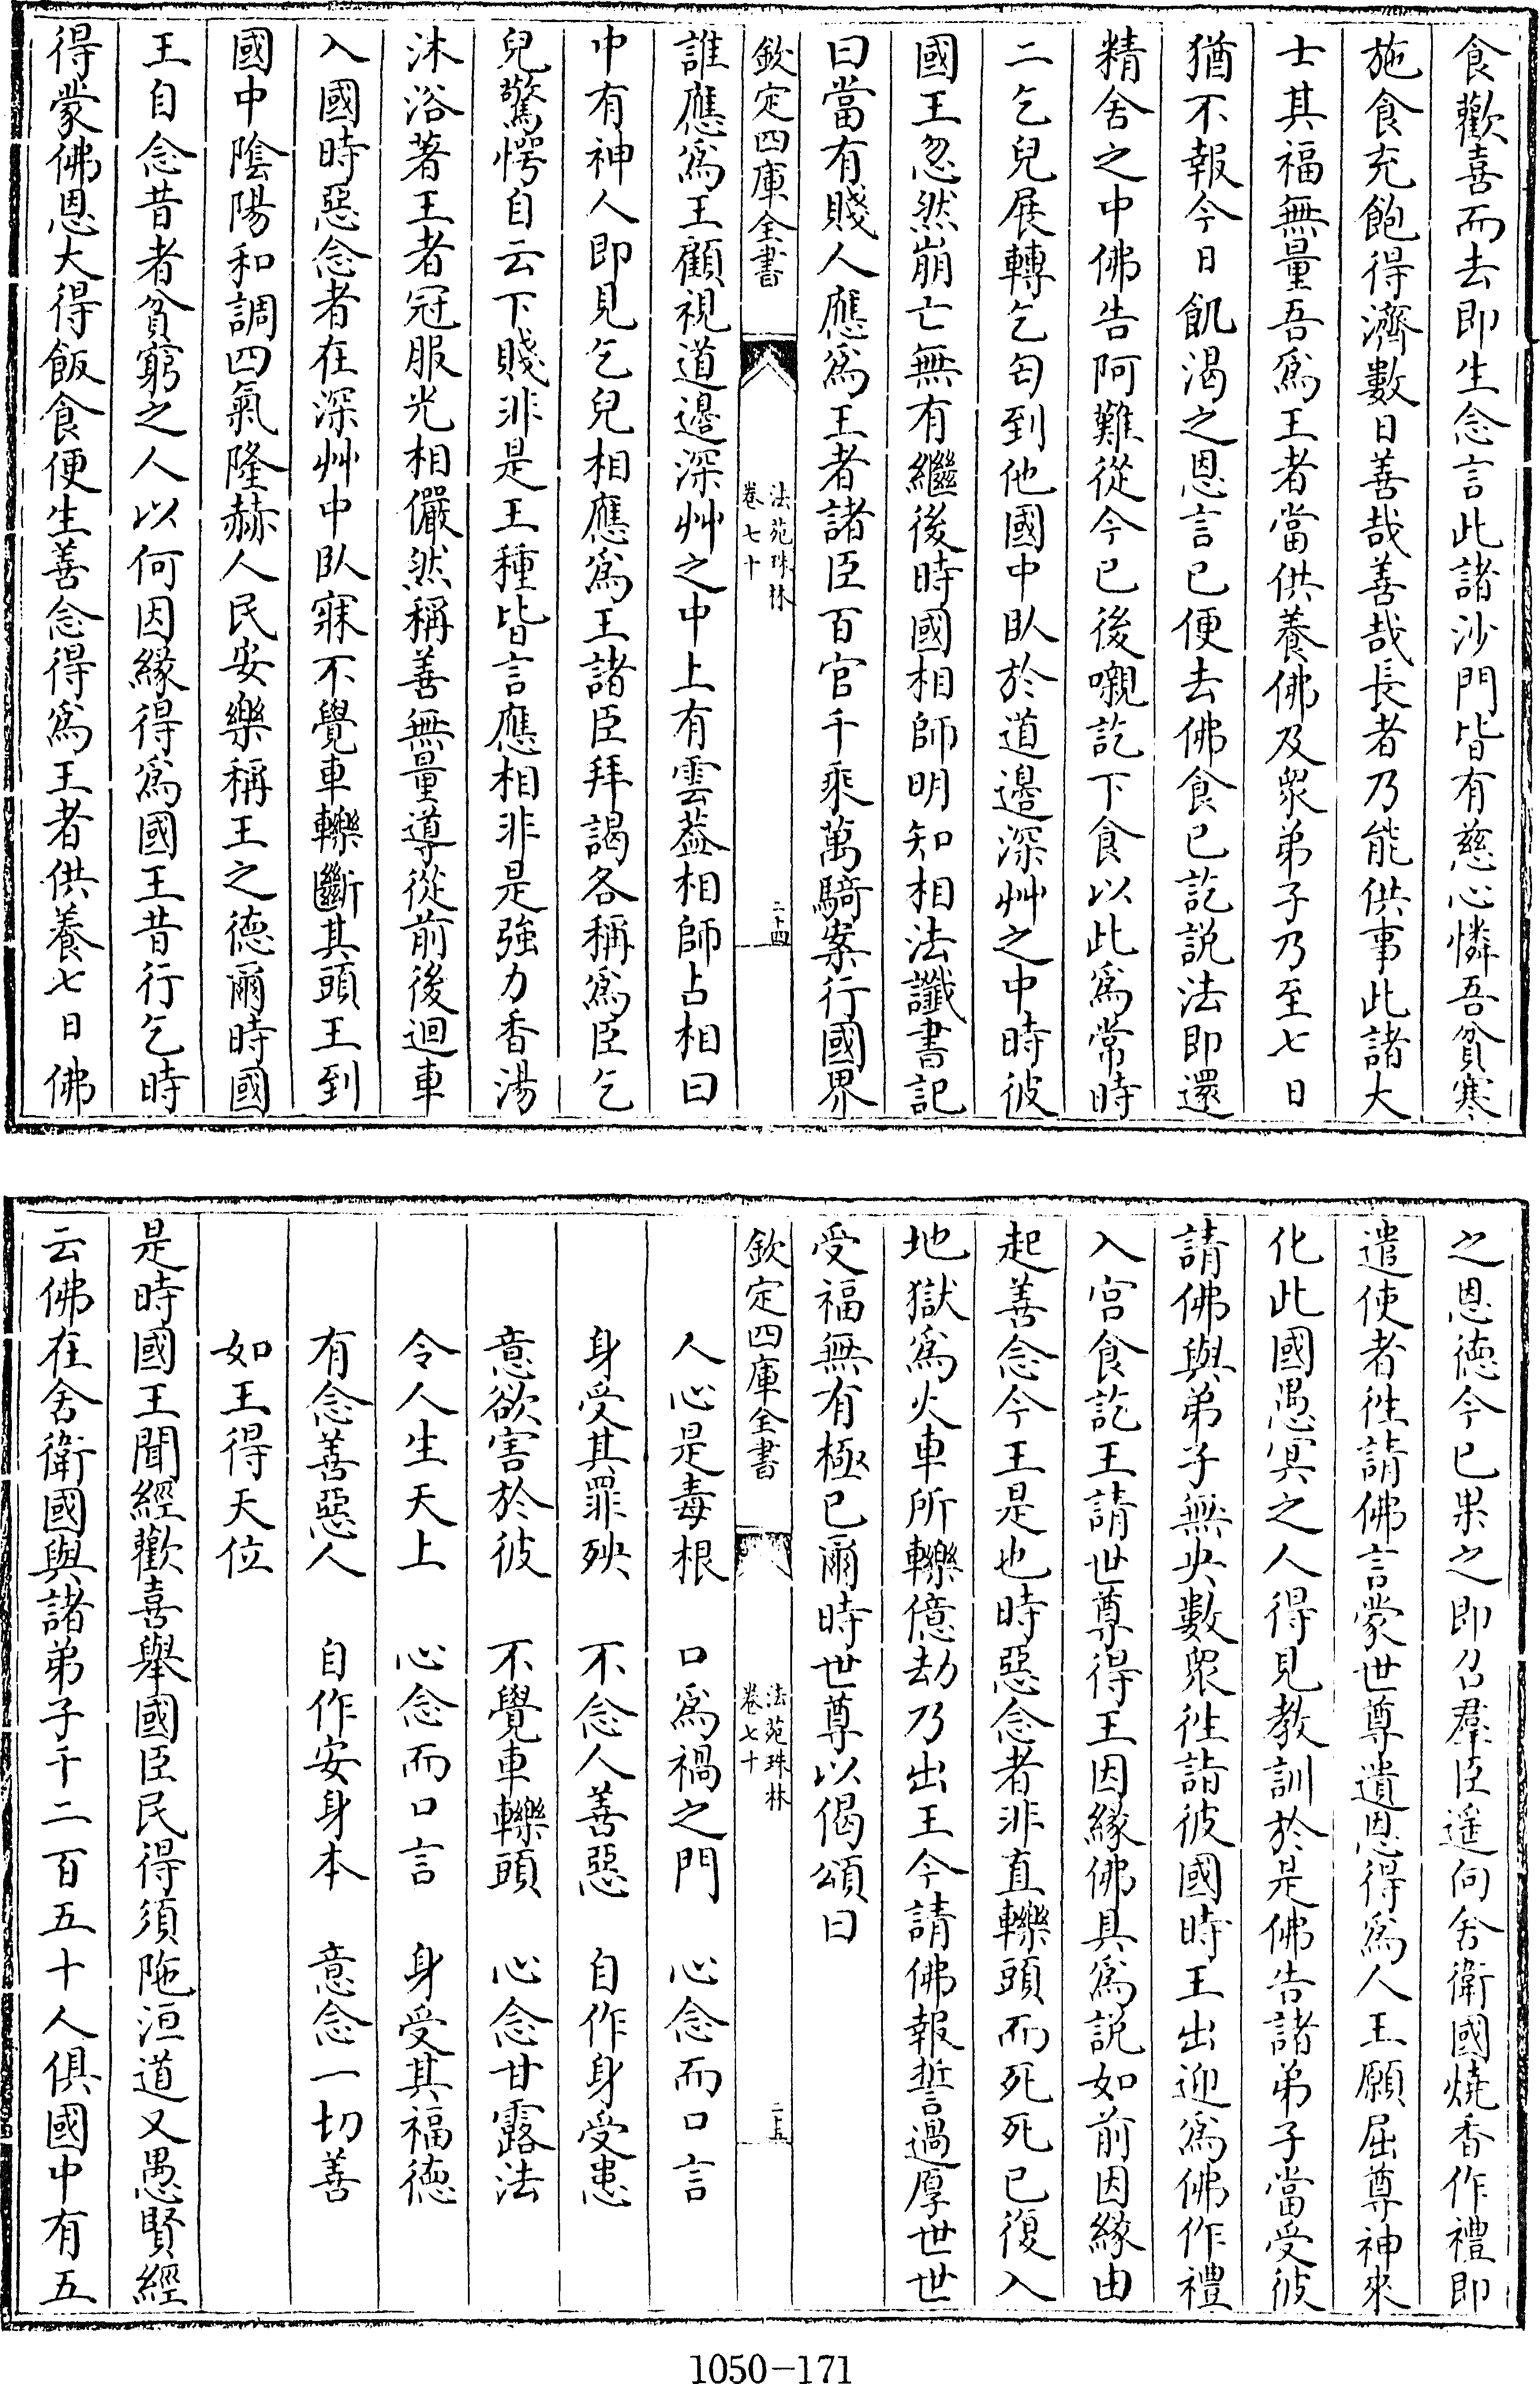 食歡喜而去即生念言此諸沙門皆有慈心憐吾貧寒
施食充飽得濟數日善哉善哉長者乃能供事此諸大
士其福無量吾爲王者當供養佛及衆弟子乃至七日
猶不報今日飢渴之恩言已便去佛食已訖説法即還
精舍之中佛告阿難從今已後嚫訖下食以此爲常時
二乞兒展轉乞匄到他國中臥於道邊深艸之中時彼
國王忽然崩亡無有繼後時國相師明知相法讖書記
曰當有賤人應爲王者諸臣百官千乘萬騎案行國界
欽定四庫全書
法苑珠林
卷七十
二十四
誰應爲王顧視道邊深艸之中上有雲蓋相師占相曰
中有神人即見乞兒相應爲王諸臣拜謁各稱爲臣乞
兒驚愕自云下賤非是王種皆言應相非是強力香湯
沐浴著王者冠服光相儼然稱善無量導從前後迴車
入國時惡念者在深艸中臥寐不覺車轢斷其頭王到
國中陰陽和調四氣隆赫人民安樂稱王之德爾時國
王自念昔者貧窮之人以何因緣得爲國王昔行乞時
得蒙佛恩大得飯食便生善念得爲王者供養七日佛
之恩德今已果之即召羣臣遥向舍衛國燒香作禮即
遣使者徃請佛言蒙世尊遺恩得爲人王願屈尊神來
化此國愚冥之人得見教訓於是佛告諸弟子當受彼
請佛與弟子無央數衆徃詣彼國時王出迎爲佛作禮
入宫食訖王請世尊得王因緣佛具爲説如前因緣由
起善念今王是也時惡念者非直轢頭而死死已復入
地獄爲火車所轢億劫乃出王今請佛報誓過厚世世
受福無有極已爾時世尊以偈頌曰
欽定四庫全書
法苑珠林
卷七十
二十五
人心是毒根　口爲禍之門　心念而口言
身受其罪殃　不念人善惡　自作身受患
意欲害於彼　不覺車轢頭　心念甘露法
令人生天上　心念而口言　身受其福德
有念善惡人　自作安身本　意念一切善
如王得天位
是時國王聞經歡喜舉國臣民得須陁洹道又愚賢經
云佛在舍衛國與諸弟子千二百五十人俱國中有五
1050-171